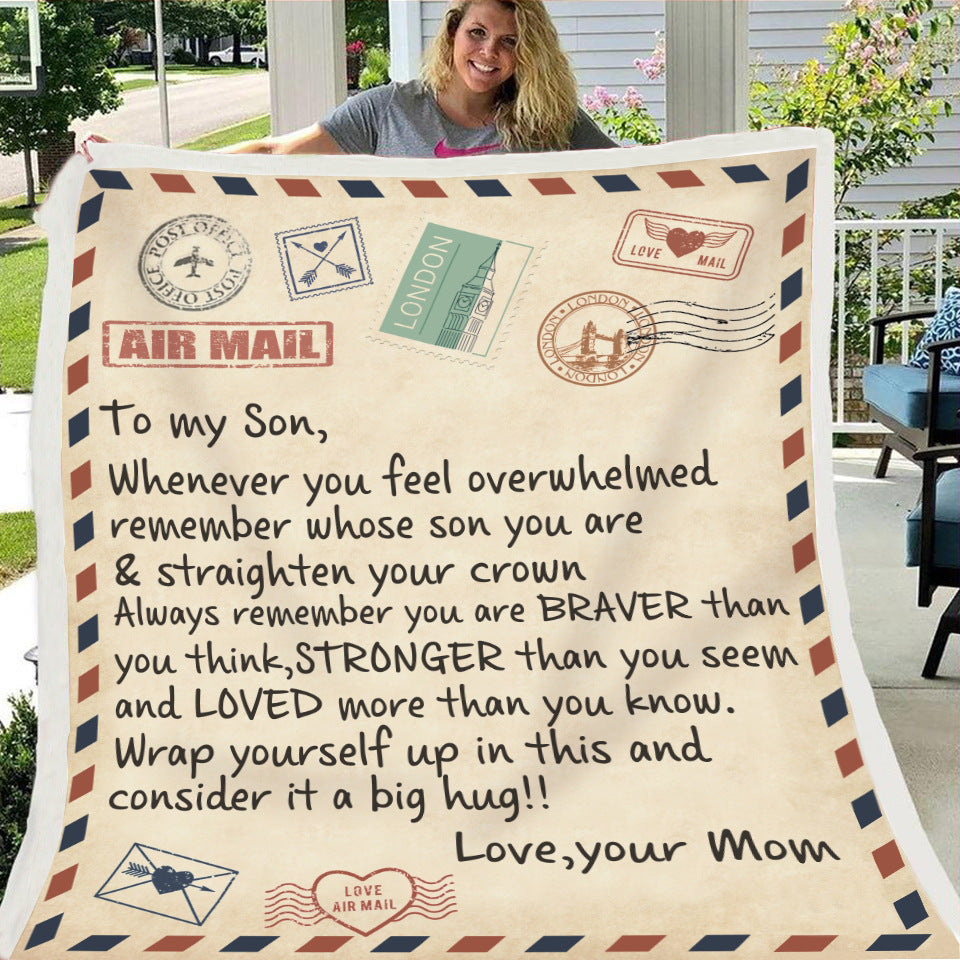 POST OFFICE POST OFFICE
LONDON
LOVE MAIL
LONDON LONDON LONDON
AIR MAIL
To my Son,
Whenever you feel overwhelmed
remember whose son you are
& straighten your crown
Always remember you are BRAVER than
you think,STRONGER than you seem
and LOVED more than you know.
Wrap yourself up in this and
consider it a big hug!!
Love,your Mom
LOVE
AIR MAIL